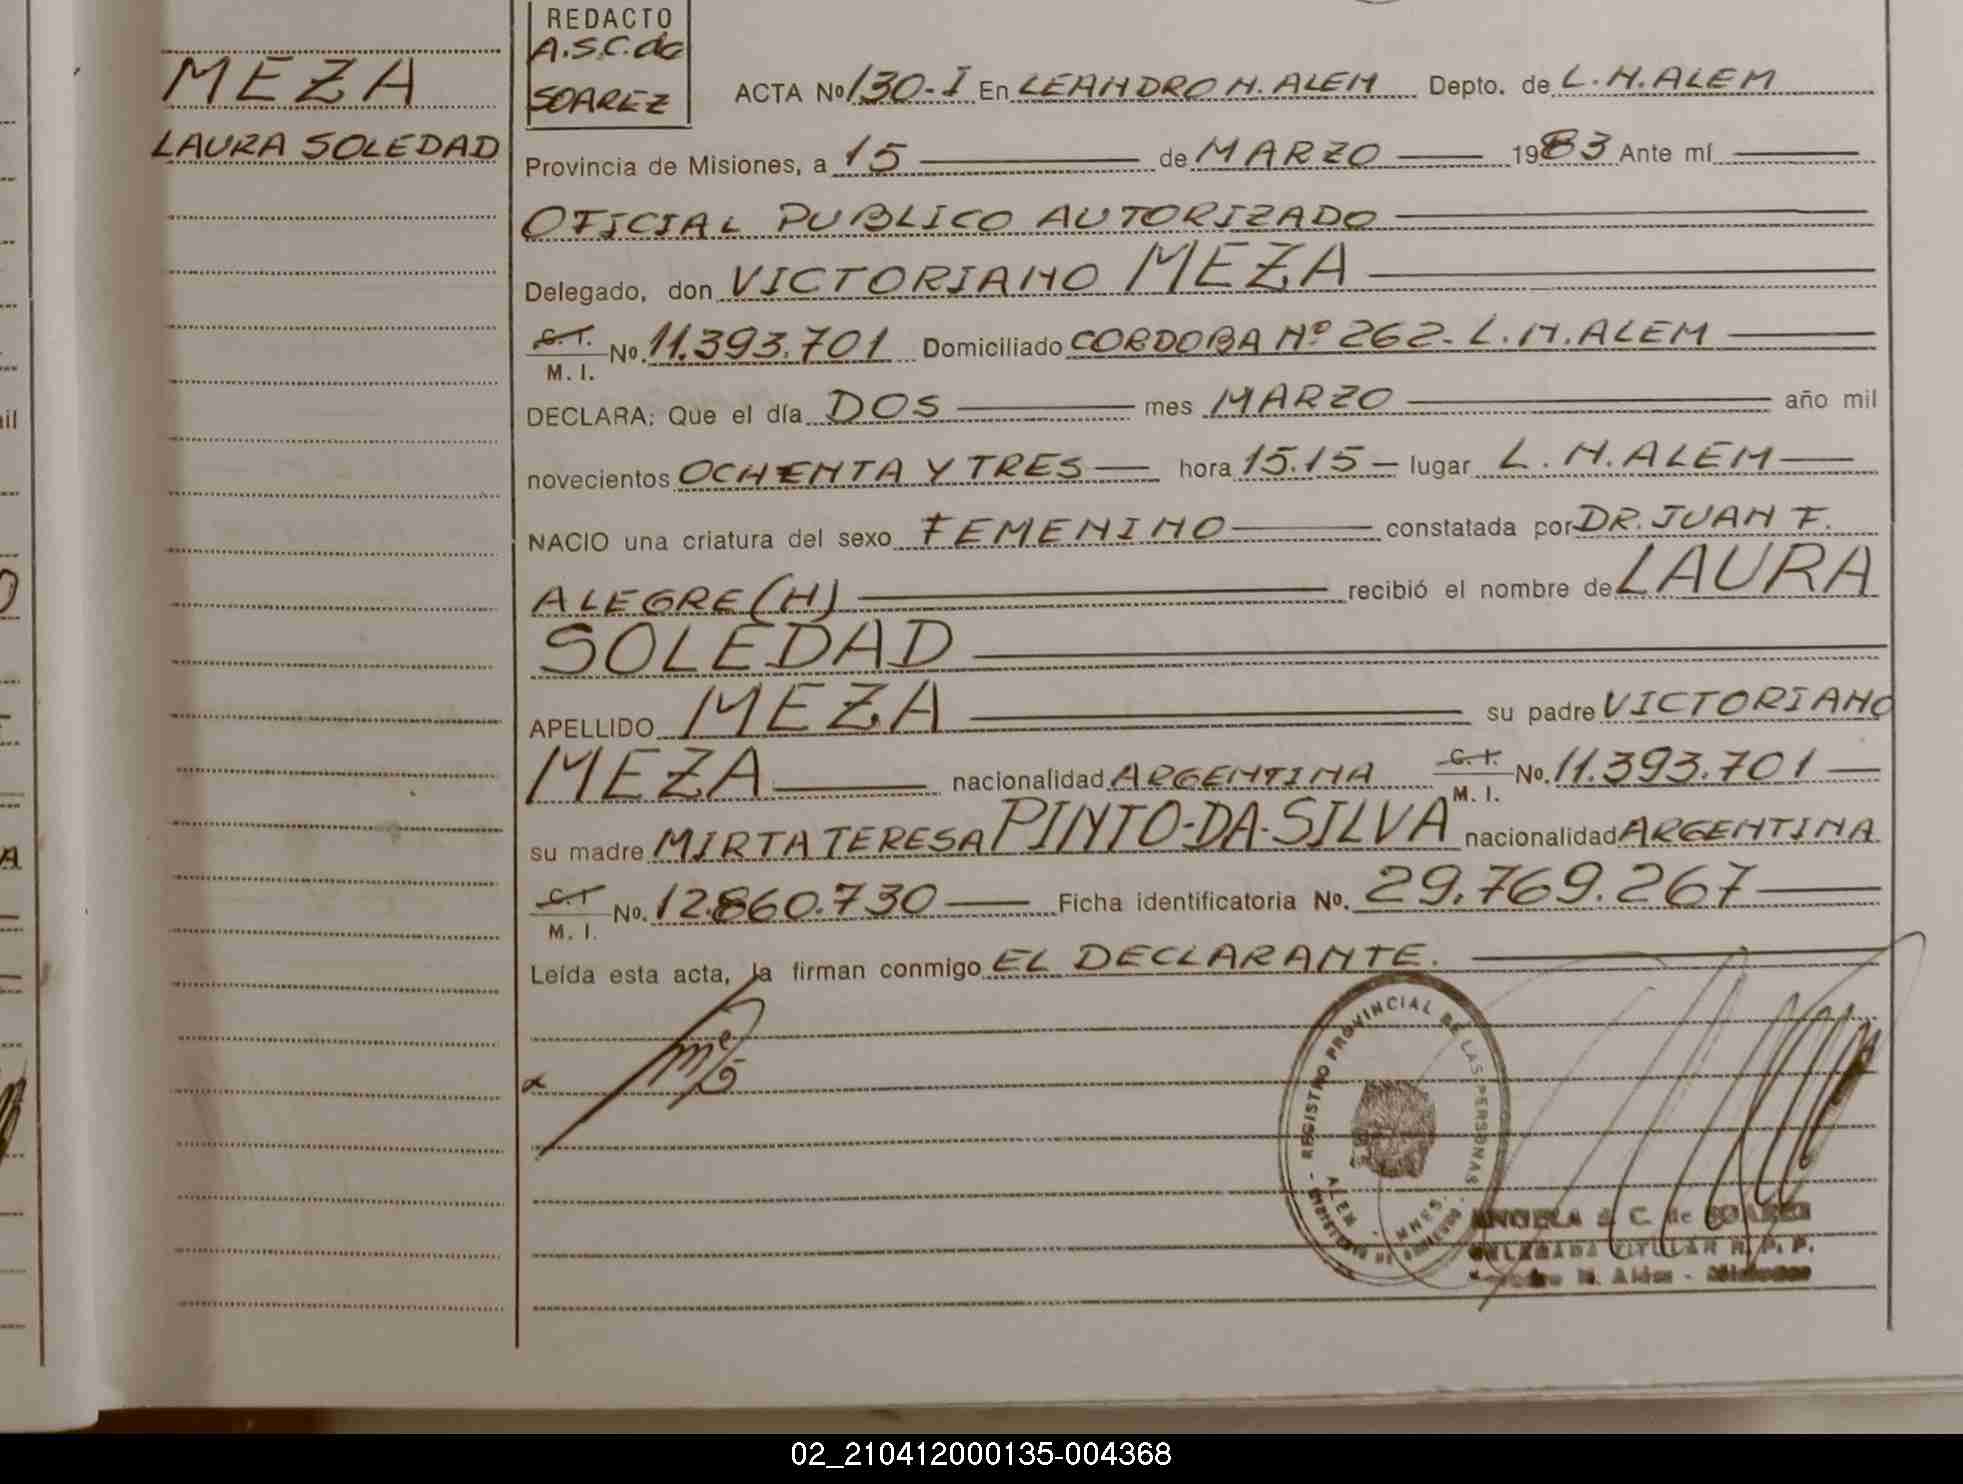 MEZA
LAURA SOLEDAD
REDACTO
A.S.C. de
SOAREZ
ACTA Nº 130-I En LEANDRO N. ALEM Depto. de L. N. ALEM
Provincia de Misiones, a 15 de MARZO 1983 Ante mí
OFICIAL PUBLICO AUTORIZADO
Delegado, don VICTORIANO MEZA
C.I. M.I. No. 11.393.701 Domiciliado CORDOBA Nº 262- L. N. ALEM
DECLARA: Que el día DOS mes MARZO año mil
novecientos OCHENTA Y TRES hora 15.15 lugar L. N. ALEM
NACIO una criatura del sexo FEMENINO constatada por DR. JUAN F.
ALEGRE (H) recibió el nombre de LAURA
SOLEDAD
APELLIDO MEZA su padre VICTORIANO
MEZA nacionalidad ARGENTINA C.I. M.I. No. 11.393.701
su madre MIRTA TERESA PINTO-DA-SILVA nacionalidad ARGENTINA
C.I. M.I. No. 12.860.730 Ficha identificatoria No. 29.769.267
Leída esta acta, la firman conmigo EL DECLARANTE.
REGISTRO PROVINCIAL DE LAS PERSONAS
ALEM - MNES.
ANGELA S. C. de SOAREZ
DELEGADA TITULAR R. P. P.
Leandro N. Alem - Misiones
02_210412000135-004368